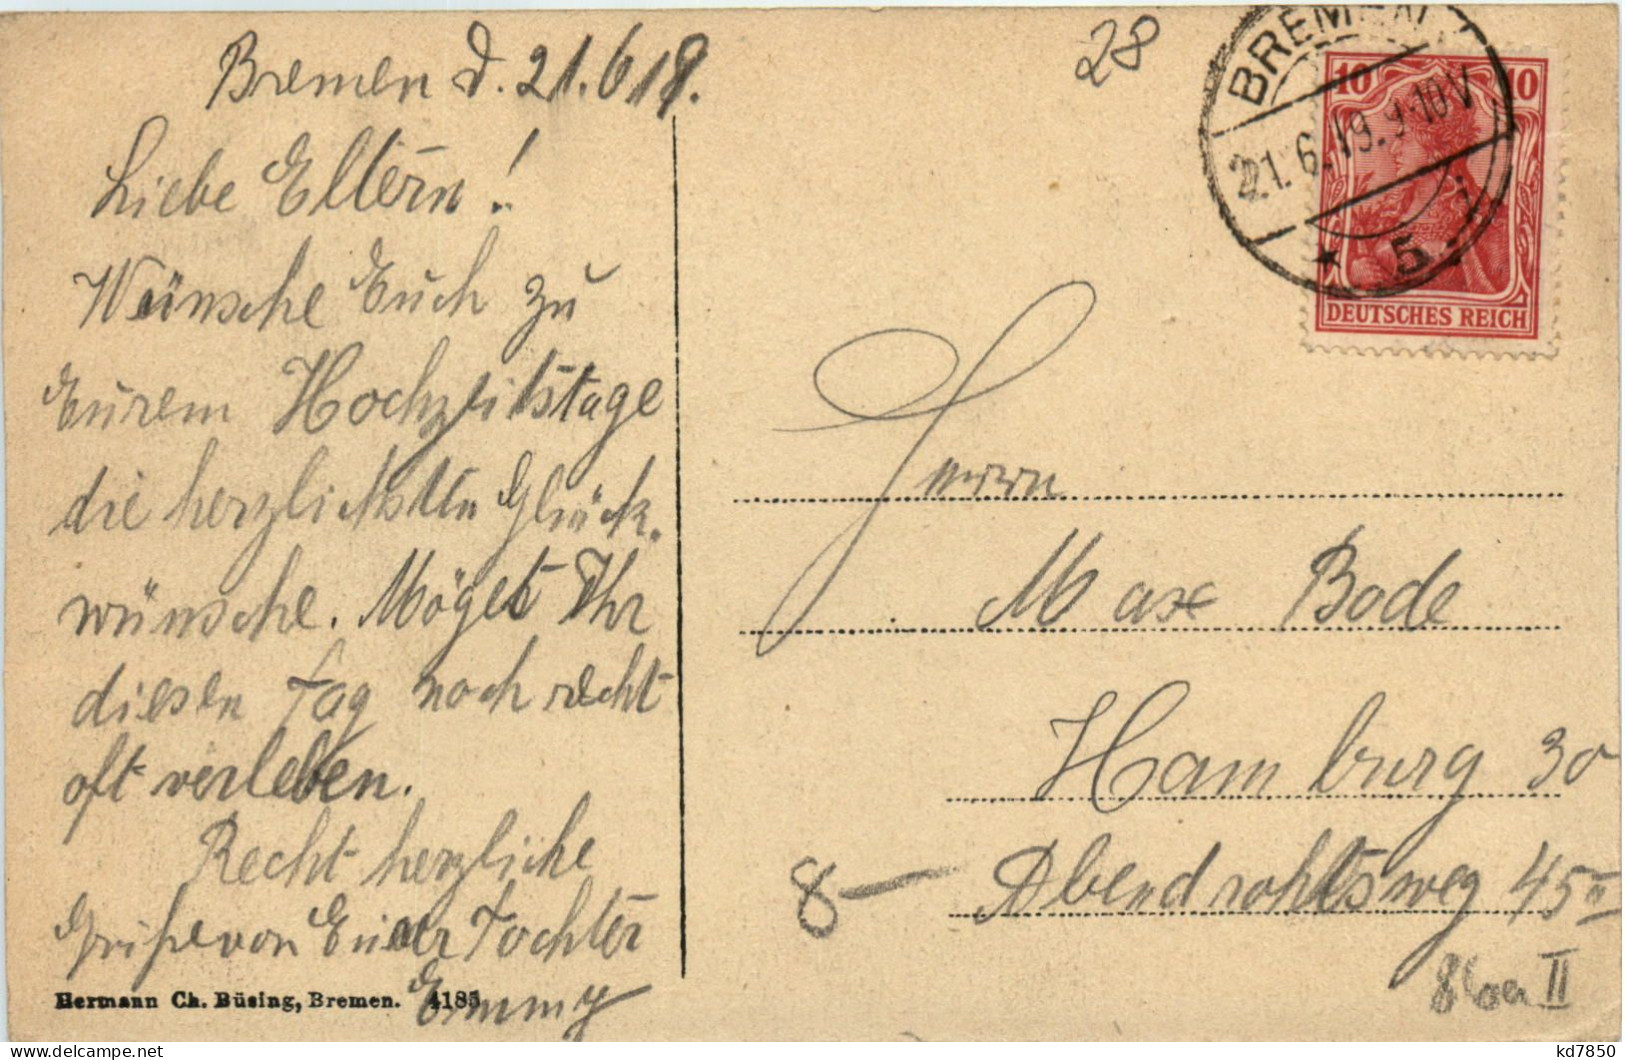 Bremen d. 21.6 19.
Liebe Eltern!
Wünsche Euch zu
Eurem Hochzeitstage
die herzlichsten Glück-
wünsche. Möget Ihr
diesen Tag noch recht
oft verleben.
Recht herzliche
Grüße von Eurer Tochter
Emmy
Hermann Ch. Büsing, Bremen. 4185
28
BREMEN
21.6.19.9-10V
* 5 i
10 10
DEUTSCHES REICH
Herrn
Max Bode
Hamburg 30
Abendrohtsweg 45 II
8—
II
kd7850